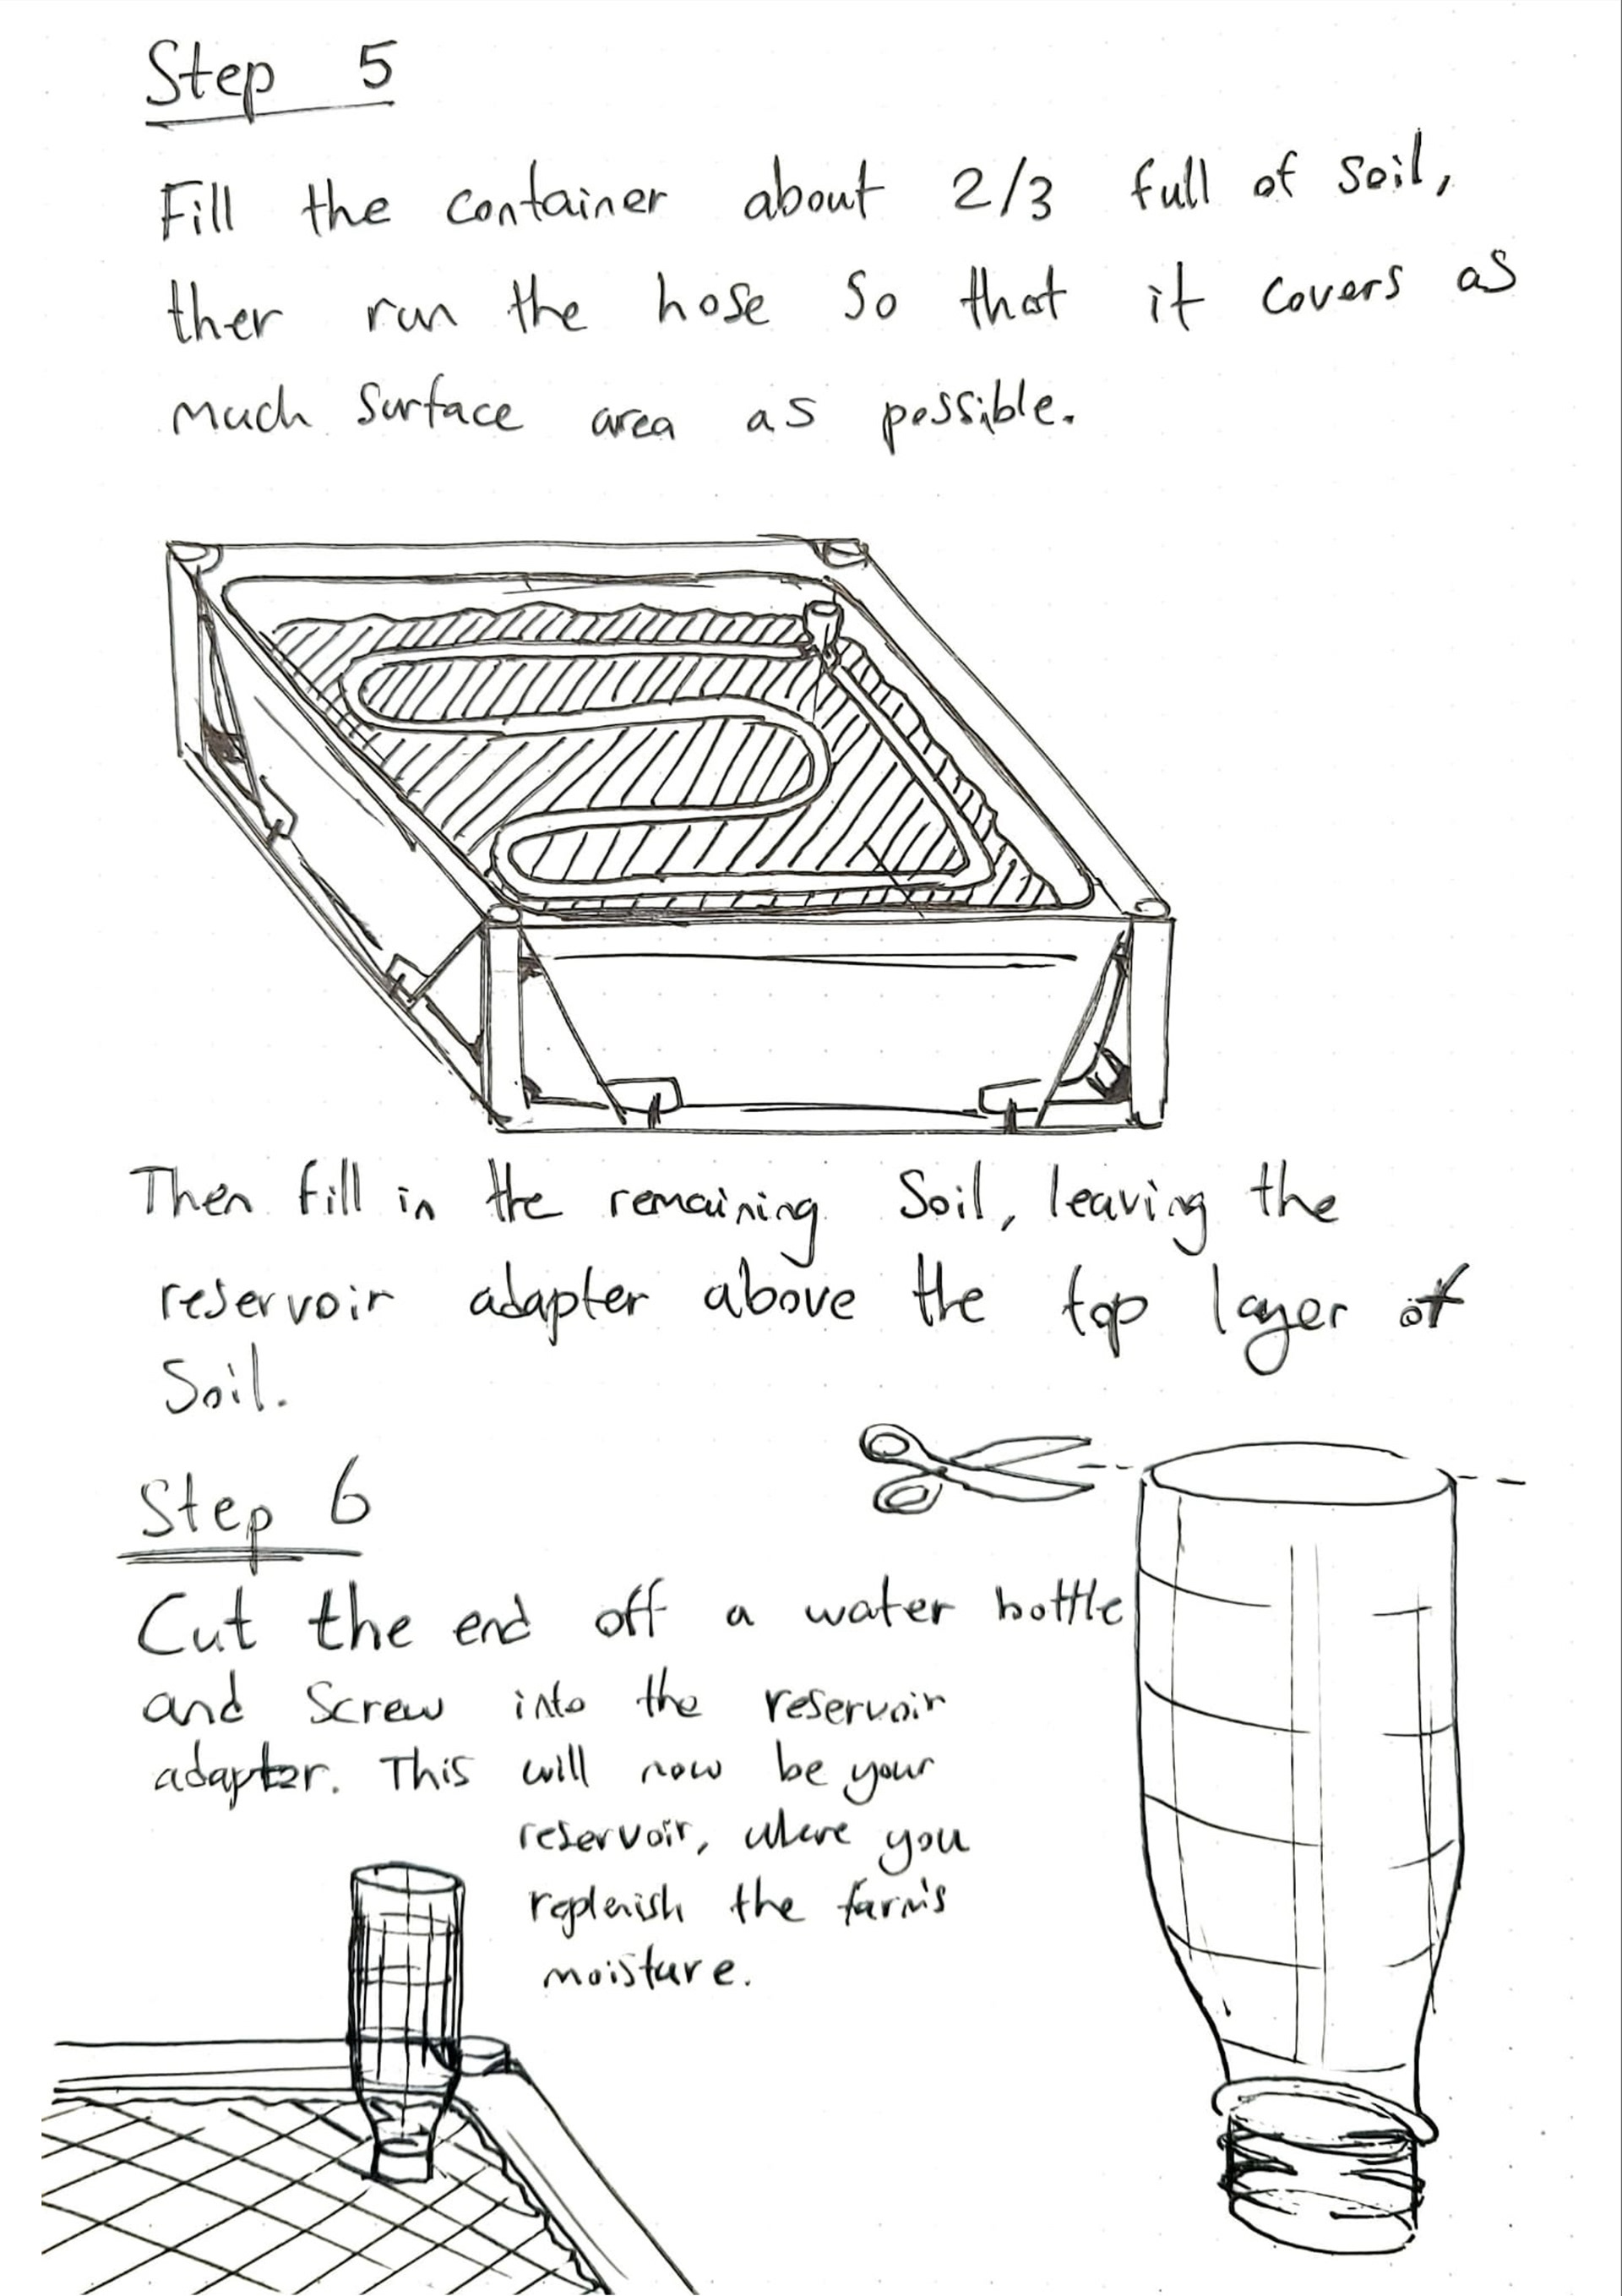 Step 5
Fill the container about 2/3 full of soil,
then run the hose so that it covers as
much surface area as possible.
Then fill in the remaining soil, leaving the
reservoir adapter above the top layer of
soil.
Step 6
Cut the end off a water bottle
and screw into the reservoir
adapter. This will now be your
reservoir, where you
replenish the farm's
moisture.